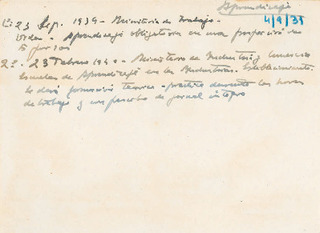 Aprendizaje
4/9/38
23 Sep. 1939 - Ministerio de Trabajo.
Orden - Aprendizaje obligatorio en una proporción de
23 Febrero 1940 - Ministerio de Industria y Comercio
Escuelas de Aprendizaje en las Industrias. Establecimiento
Se dará formación teórica - práctica durante las horas
de trabajo y con percibo de jornal integro